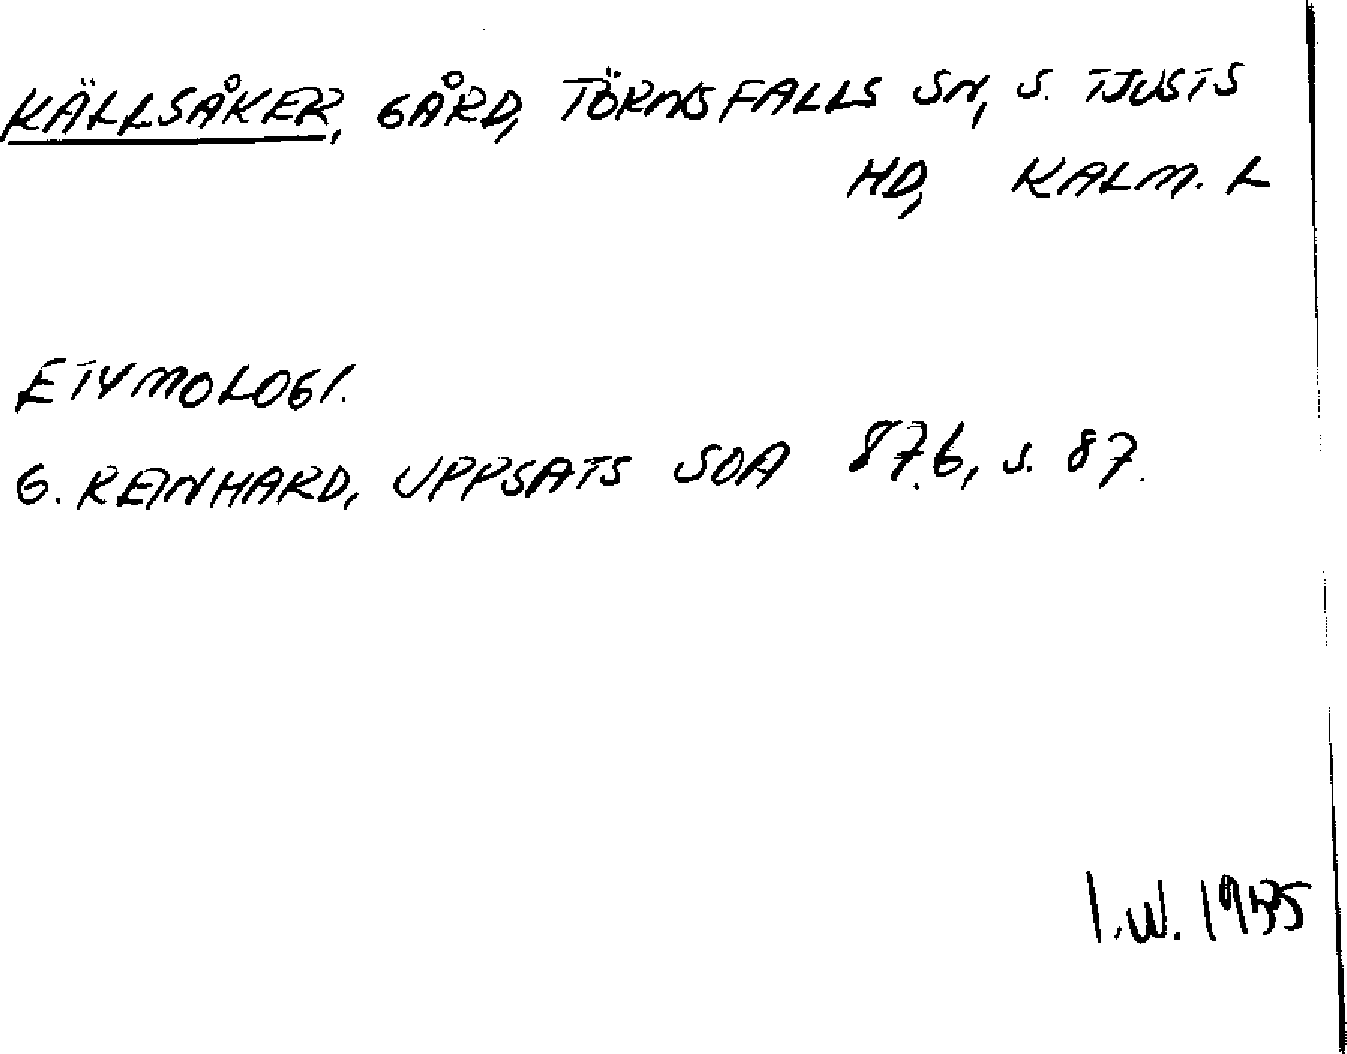 KÄLLSÅKER, GÅRD, TÖRNSFALLS SN, S. TJUSTS
HD, KALM. L
ETYMOLOGI.
G. REINHARD, UPPSATS SOA 87.6, S. 87.
I.W.